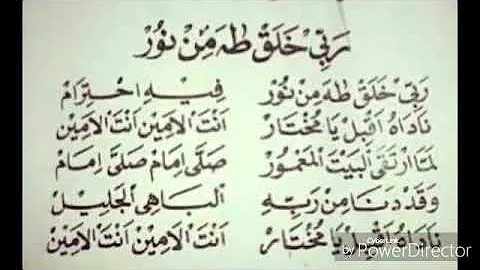 رَبِّيْ خَلَقْ طٰهَ مِنْ نُوْرْ
رَبِّيْ خَلَقْ طٰهَ مِنْ نُوْرْ فِيْهِ احْتِرَامْ
نَادَاهُ اَقْبِلْ يَا مُخْتَارْ اَنْتَ الْاَمِيْنْ اَنْتَ الْاَمِيْنْ
لَمَّا ارْتَقَى الْبَيْتَ الْمَعْمُوْرْ صَلَّى اِمَامْ صَلَّى اِمَامْ
وَقَدْ دَنَا مِنْ رَبِّهِ اَلْبَاهِي الْجَلِيْلْ
نَادَاهُ اَقْبِلْ يَا مُخْتَارْ اَنْتَ الْاَمِيْنْ اَنْتَ الْاَمِيْنْ
CyberLink
by PowerDirector